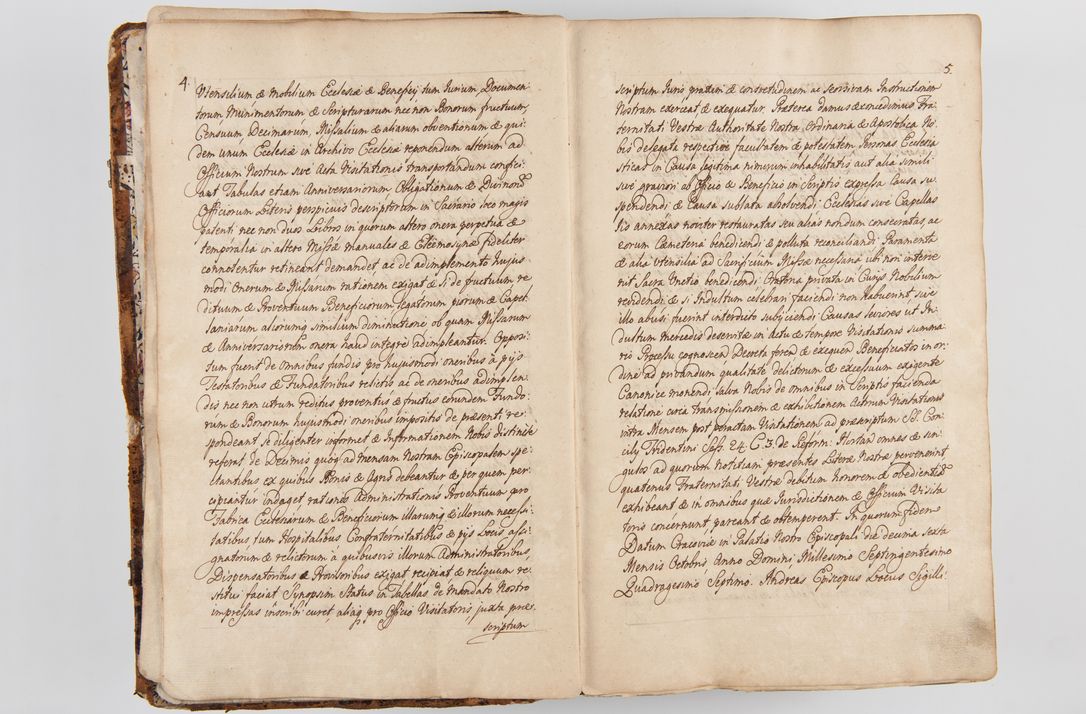 4.
Utensilium & Mobilium Ecclesiæ & Beneficij tum Iurium, Documen
torum Munimentorum & Scripturarum nec non Bonorum fructuum,
Censuum Decimarum, Missalium & aliarum obventionum & qui
dem unum Ecclesiæ in Archivo Ecclesiæ reponendum alterum ad
Officium Nostrum sive Acta Visitationis transportandum confici
ant Tabulas etiam Anniversariorum Obligationum & Divinorũ
Officiorum Literis perspicuis descriptorum in Sacrario loco magis
patenti nec non duos Libros in quorum altero onera perpetua &
temporalia in altero Missæ manuales & Eleemosynæ fideliter
connotentur retineant demandet, ac de adimplemento hujus
modi Onerum & Missarum rationem exigat & si de fructuum re
dituum & Proventuum Beneficiorum legatorum piorum & Capel
laniarum aliorumq similium diminutione ob quam Missarum
& Anniversariorum onera haud integre adimpleantur. Opposi
tum fuerit de omnibus fundis pro hujusmodi oneribus à pijs
Testatoribus & Fundatoribus relictis ac de oneribus adimplen
dis nec non utrum reditus proventus & fructus eorundem Fundo
rum & Bonorum hujusmodi oneribus impositis de præsenti res
pondeant se diligenter informet & Informationem Nobis distincte
referat de Decimis quoq ad mensam Nostram Episcopalem spe
ctantibus ex quibus Bonis & Agris debeantur & per quem per
cipiantur indaget rationes Administrationis Proventuum pro
Fabrica Ecclesiarum & Beneficiorum illarumq & illorum necessi
tatibus tum Hospitalibus Confraternitatibus & pijs Locis assi
gnatorum & relictorum à quibusvis illorum Administratoribus,
Dispensatoribus & Provisoribus exigat recipiat & reliquum re
stitui faciat Synopsim Status in Tabellas de Mandato Nostro
impressas inscribi curet, aliaq pro Officio Visitatoris, juxta præs
scriptum
5.
scriptum Iuris, praxim & consvetudinem ac Seorsivam Instructionem
Nostram exerceat, & exequatur. Præterea damus & concedimus Fra
ternitati Vestræ Authoritate Nostra Ordinaria & Apostolica No
bis delegata respective facultatem & potestatem Personas Ecclesia
sticas in Causa legitima nimirum inhabilitatis aut alia simili
sive graviori ab Officio & Beneficio in Scriptis expressa Causa su
spendendi & Causa sublata absolvendi Ecclesias sive Capellas
ijs annexas noviter restauratas seu alias nondum consecratas, ac
eorum Cæmeteria benedicendi & polluta reconciliandi Paramenta
& alia Utensilia ad Sacrificium Missæ necessaria ubi non interve
nit Sacra Unctio benedicendi Oratoria privata in Curijs Nobilium
revidendi & si Indultum celebrari faciendi non habuerint sive
illo abusi fuerint interdicto subijciendi Causas leviores ut In
dustum mercedis deservitæ in Actu & tempore Visitationis summa
rio Processu cognoscendi Decreta ferendi & exequen Beneficiatos in or
dine ad privandum qualitate delictorum & excessuum exigente
Canonice monendi, salva Nobis de omnibus in Scriptis facienda
relatione circa transmissionem & exhibitionem Actorum Visitationis
intra Mensem post peractam Visitationem ad præscriptum SS. Con
cilij Tridentini Sess. 24. C. 3. de Reform: Hortan omnes & sin
gulos ad quorum notitiam præsentes Literæ Nostræ pervenerint
quatenus Fraternitati Vestræ debitum honorem & obedientiã
exhibeant & in omnibus quæ Iurisdictionem & Officium Visita
toris concernunt pareant & obtemperent. In quorum fidem
Datum Cracoviæ in Palatio Nostro Episcopali die decima sexta
Mensis Octobris Anno Domini, Millesimo Septingentesimo
Quadragesimo Septimo. Andreas Episcopus Locus Sigilli